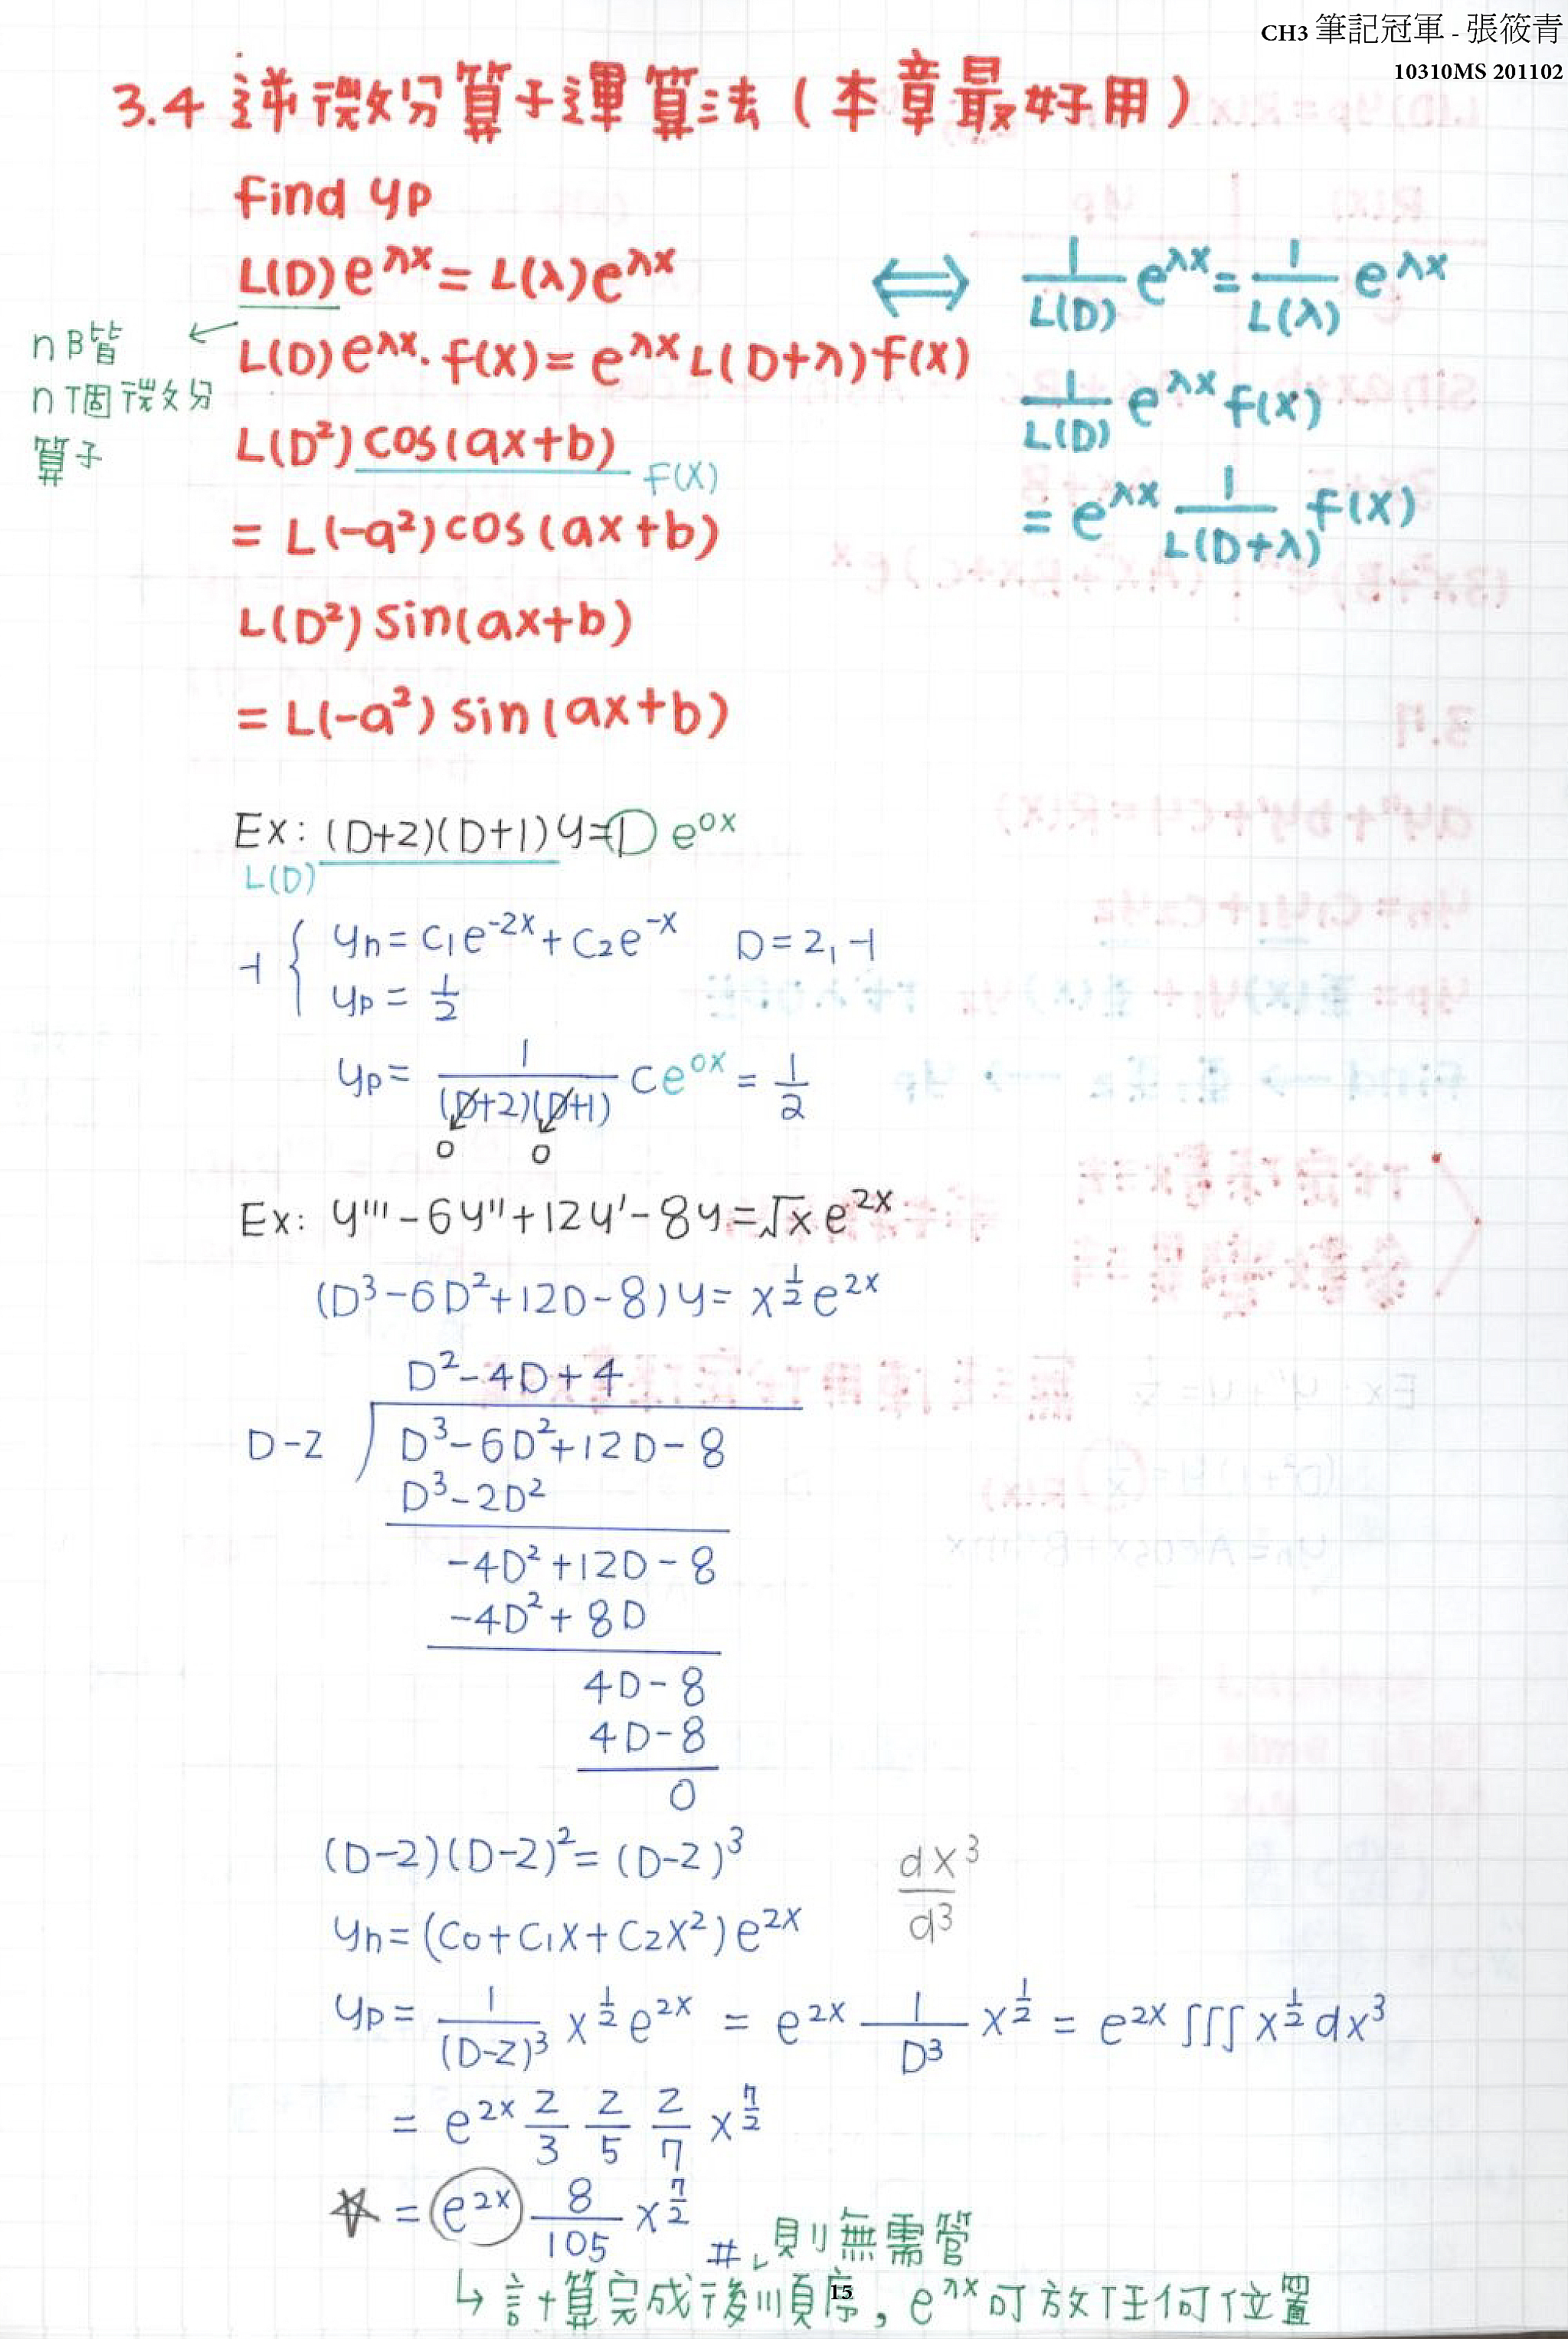 CH3 筆記冠軍 - 張筱青
10310MS 201102
3.4 逆微分算子運算法(本章最好用)
Find yp
L(D)e^λx = L(λ)e^λx ⟺ 1/L(D) e^λx = 1/L(λ) e^λx
n階
n個微分
算子
L(D)e^λx · f(x) = e^λx L(D+λ)f(x)
1/L(D) e^λx f(x)
= e^λx 1/L(D+λ) f(x)
L(D²)cos(ax+b) F(X)
= L(-a²)cos(ax+b)
L(D²)sin(ax+b)
= L(-a²)sin(ax+b)
Ex: (D+2)(D+1)y=1 e^0x
L(D)
yh = C1e^-2x + C2e^-x D=2,-1
yp = 1/2
yp = 1/(D+2)(D+1) Ce^0x = 1/2
0 0
Ex: y''' - 6y'' + 12y' - 8y = √x e^2x
(D³-6D²+12D-8)y = x^1/2 e^2x
D²-4D+4
D-2 D³-6D²+12D-8
D³-2D²
-4D²+12D-8
-4D²+8D
4D-8
4D-8
0
(D-2)(D-2)² = (D-2)³
dx³/d³
yh = (C0+C1x+C2x²)e^2x
yp = 1/(D-2)³ x^1/2 e^2x = e^2x 1/D³ x^1/2 = e^2x ∫∫∫ x^1/2 dx³
= e^2x 2/3 2/5 2/7 x^7/2
☆ = e^2x 8/105 x^7/2 #
則無需管
↳ 計算完成後順序, e^λx可放任何位置
15